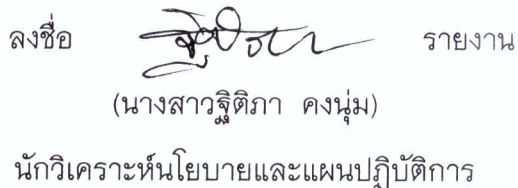 ลงชื่อ รายงาน
(นางสาวฐิติภา คงนุ่ม)
นักวิเคราะห์นโยบายและแผนปฏิบัติการ